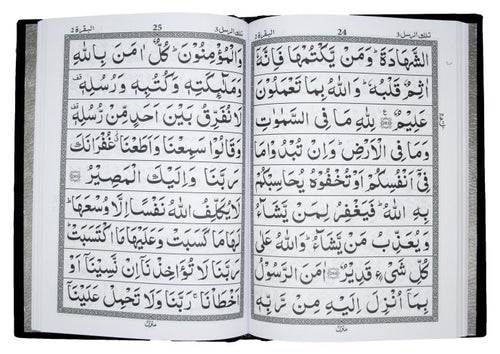 تلك الرسل ٣
24
البقرة ٢
الشَّهَادَةَ ؕ وَمَنْ يَّكْتُمْهَا فَاِنَّهٗۤ
اٰثِمٌ قَلْبُهٗ ؕ وَاللّٰهُ بِمَا تَعْمَلُوْنَ
عَلِيْمٌ لِلّٰهِ مَا فِى السَّمٰوٰتِ
وَمَا فِى الْاَرْضِ ؕ وَاِنْ تُبْدُوْا مَا
فِىْۤ اَنْفُسِكُمْ اَوْ تُخْفُوْهُ يُحَاسِبْكُمْ
بِهِ اللّٰهُ ؕ فَيَغْفِرُ لِمَنْ يَّشَآءُ
وَيُعَذِّبُ مَنْ يَّشَآءُ ؕ وَاللّٰهُ عَلٰى
كُلِّ شَىْءٍ قَدِيْرٌ اٰمَنَ الرَّسُوْلُ
بِمَاۤ اُنْزِلَ اِلَيْهِ مِنْ رَّبِّهٖ
منزل
تلك الرسل ٣
25
البقرة ٢
وَالْمُؤْمِنُوْنَ ؕ كُلٌّ اٰمَنَ بِاللّٰهِ
وَمَلٰٓئِكَتِهٖ وَكُتُبِهٖ وَرُسُلِهٖ
لَا نُفَرِّقُ بَيْنَ اَحَدٍ مِّنْ رُّسُلِهٖ
وَقَالُوْا سَمِعْنَا وَاَطَعْنَا غُفْرَانَكَ
رَبَّنَا وَاِلَيْكَ الْمَصِيْرُ
لَا يُكَلِّفُ اللّٰهُ نَفْسًا اِلَّا وُسْعَهَا ؕ
لَهَا مَا كَسَبَتْ وَعَلَيْهَا مَا اكْتَسَبَتْ ؕ
رَبَّنَا لَا تُؤَاخِذْنَاۤ اِنْ نَّسِيْنَاۤ اَوْ
اَخْطَاْنَا ۚ رَبَّنَا وَلَا تَحْمِلْ عَلَيْنَاۤ
منزل